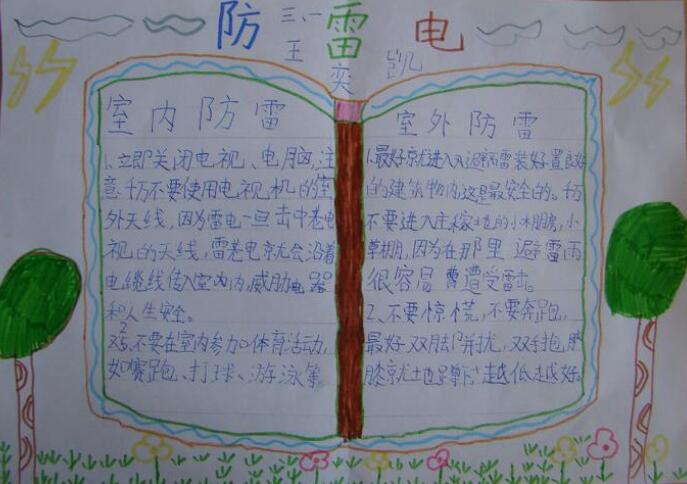 防雷电
三、一
王奕凯
室内防雷
1、立即关闭电视、电脑,注
意千万不要使用电视机的室
外天线,因为雷电一旦击中电
视的天线,雷电就会沿着
电缆线传入室内,威胁电器
和人生安全。
2、不要在室内参加体育活动,
如赛跑、打球、游泳等
室外防雷
1、最好就进入避雷装好置良好
的建筑物内,这是最安全的。千万
不要进入庄稼地的小棚房,小
草棚,因为在那里避雷雨
很容易遭受雷击。
2、不要惊慌,不要奔跑,
最好双脚并拢,双手抱
膝就地蹲下,越低越好。